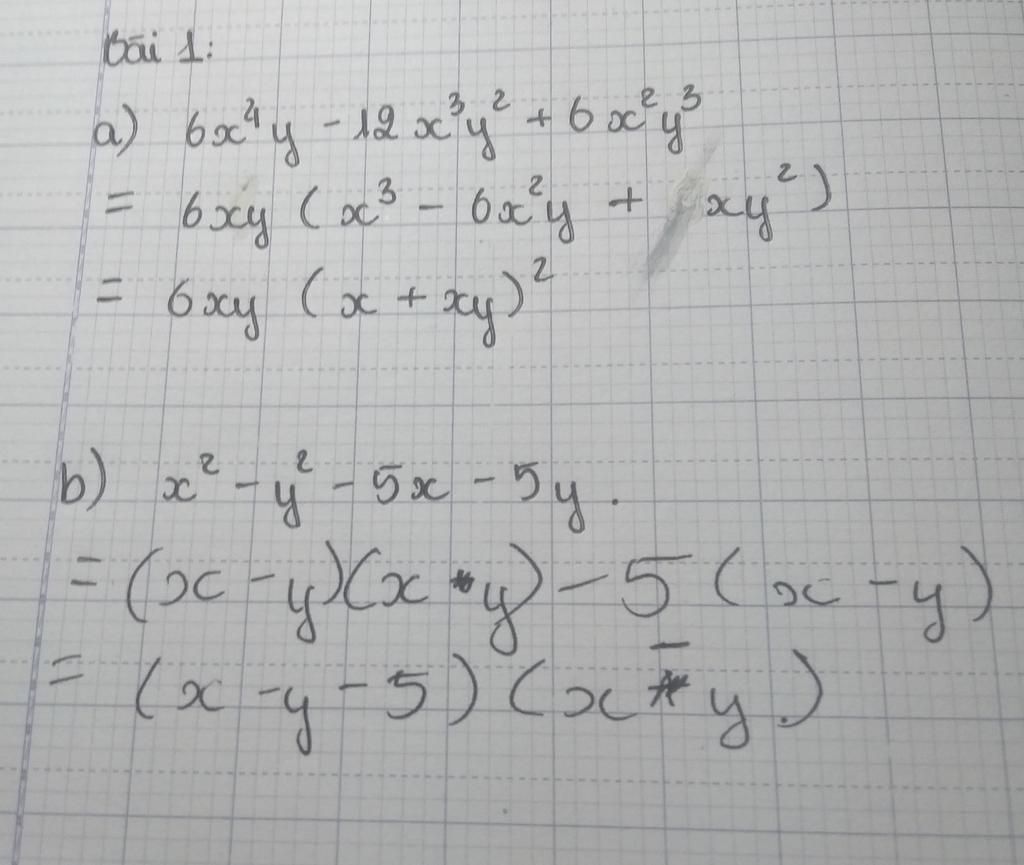 Bài 1:
a) 6x⁴y - 12x³y² + 6x²y³
= 6xy (x³ - 6x²y + xy²)
= 6xy (x + xy)²
b) x² - y² - 5x - 5y.
= (x - y)(x y) - 5 (x - y)
= (x - y - 5) (x - y)